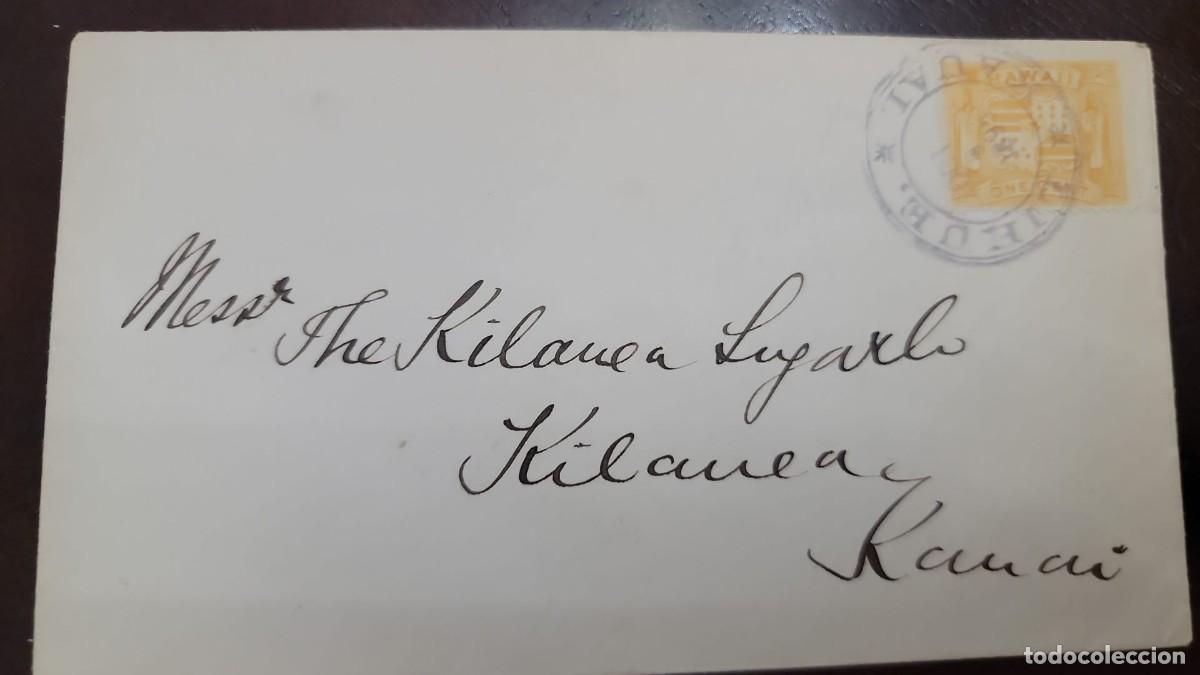 HAWAII
ONE CENT
Messrs
The Kilauea Sugar Co
Kilauea
Kauai
todocoleccion